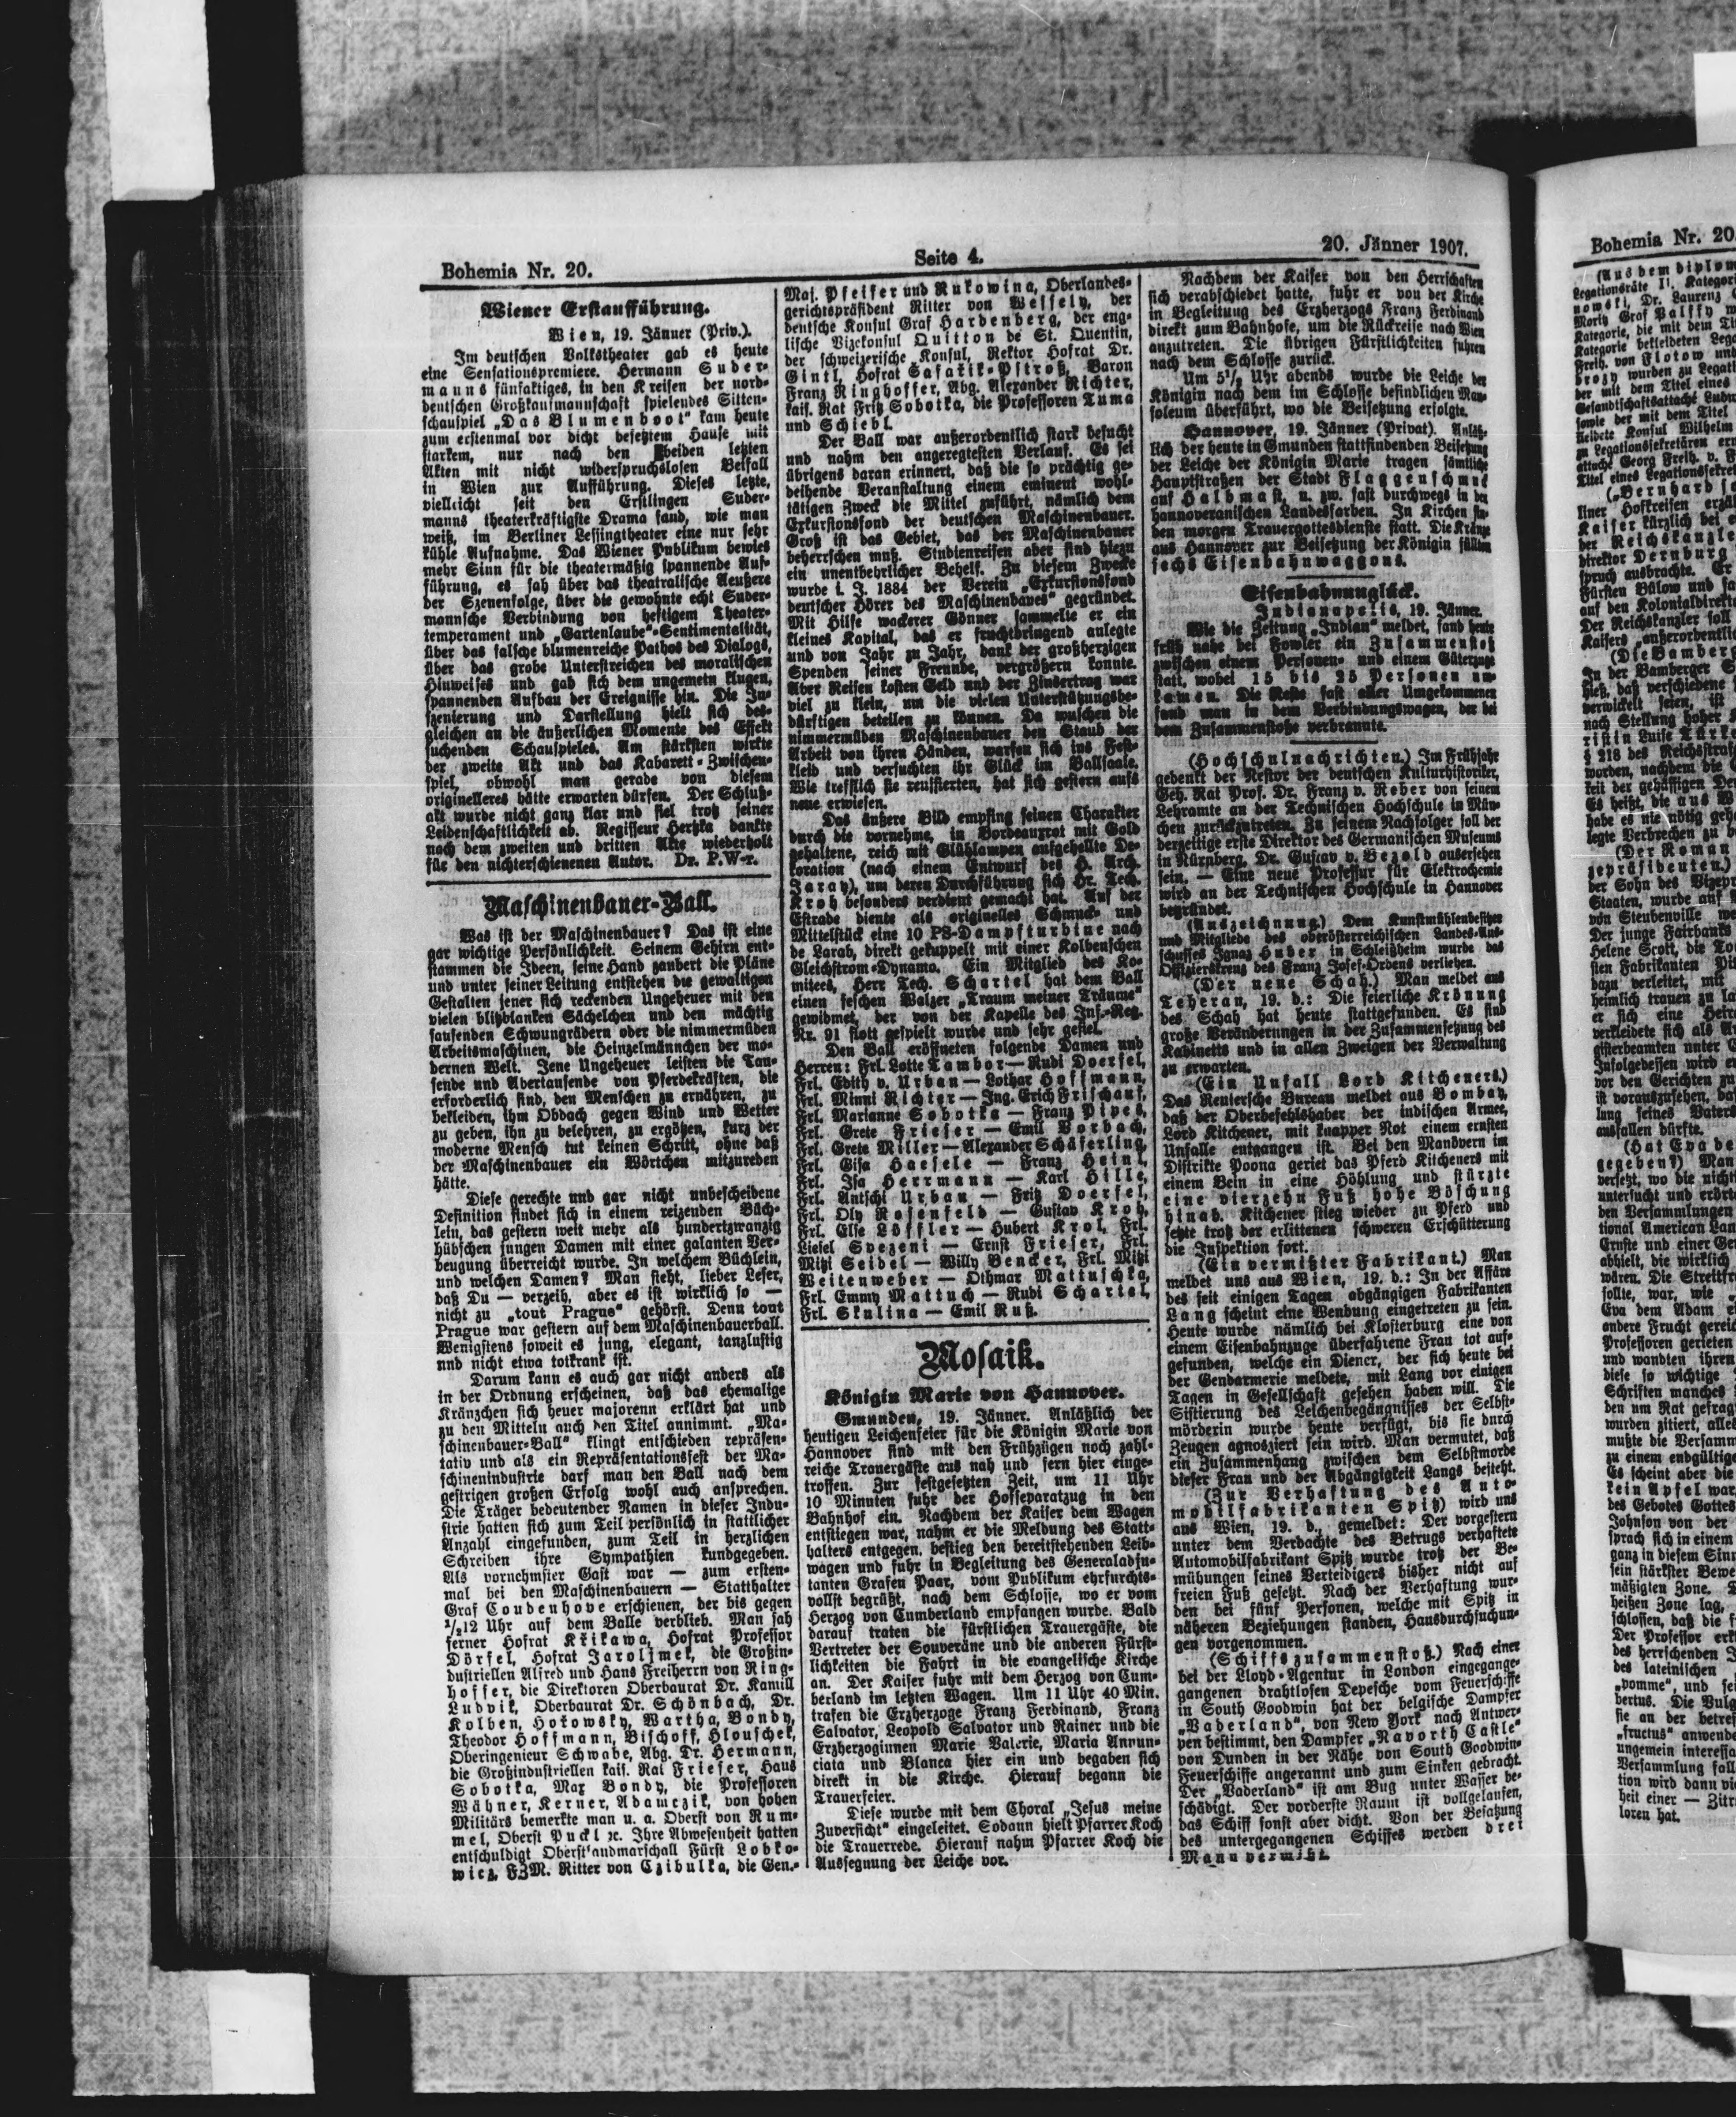 Bohemia Nr. 20.
Seite 4.
20. Jänner 1907.
Wiener Erstaufführung.
Wien, 19. Jänner (Priv.).
Im deutschen Volkstheater gab es heute
eine Sensationspremiere. Hermann Suder-
manns fünfaktiges, in den Kreisen der nord-
deutschen Großkaufmannschaft spielendes Sitten-
schauspiel „Das Blumenboot" kam heute
zum erstenmal vor dicht besetztem Hause mit
starkem, nur nach den beiden letzten
Akten mit nicht widerspruchslosen Beifall
in Wien zur Aufführung. Dieses letzte,
vielleicht seit den Erstlingen Suder-
manns theaterkräftigste Drama fand, wie man
weiß, im Berliner Lessingtheater eine nur sehr
kühle Aufnahme. Das Wiener Publikum bewies
mehr Sinn für die theatermäßig spannende Auf-
führung, es sah über das theatralische Aeußere
der Szenenfolge, über die gewohnte echt Suder-
mannsche Verbindung von heftigem Theater-
temperament und „Gartenlaube"-Sentimentalität,
über das falsche blumenreiche Pathos des Dialogs,
über das grobe Unterstreichen des moralischen
Hinweises und gab sich dem ungemein klugen,
spannenden Aufbau der Ereignisse hin. Die In-
szenierung und Darstellung hielt sich des-
gleichen an die äußerlichen Momente des Effekt
suchenden Schauspieles. Am stärksten wirkte
der zweite Akt und das Kabarett-Zwischen-
spiel, obwohl man gerade von diesem
originelleres hätte erwarten dürfen. Der Schluß-
akt wurde nicht ganz klar und fiel trotz seiner
Leidenschaftlichkeit ab. Regisseur Hertzka dankte
nach dem zweiten und dritten Akte wiederholt
für den nichterschienenen Autor. Dr. P.W-r.
Maschinenbauer-Ball.
Was ist der Maschinenbauer? Das ist eine
gar wichtige Persönlichkeit. Seinem Gehirn ent-
stammen die Ideen, seine Hand zaubert die Pläne
und unter seiner Leitung entstehen die gewaltigen
Gestalten jener sich reckenden Ungeheuer mit den
vielen blitzblanken Sächelchen und den mächtig
sausenden Schwungrädern oder die nimmermüden
Arbeitsmaschinen, die Heinzelmännchen der mo-
dernen Welt. Jene Ungeheuer leisten die Tau-
sende und Abertausende von Pferdekräften, die
erforderlich sind, den Menschen zu ernähren, zu
bekleiden, ihm Obdach gegen Wind und Wetter
zu geben, ihn zu belehren, zu ergötzen, kurz der
moderne Mensch tut keinen Schritt, ohne daß
der Maschinenbauer ein Wörtchen mitzureden
hätte.
Diese gerechte und gar nicht unbescheidene
Definition findet sich in einem reizenden Büch-
lein, das gestern weit mehr als hundertzwanzig
hübschen jungen Damen mit einer galanten Ver-
beugung überreicht wurde. In welchem Büchlein,
und welchen Damen? Man sieht, lieber Leser,
daß Du — verzeih, aber es ist wirklich so —
nicht zu „tout Prague" gehörst. Denn tout
Prague war gestern auf dem Maschinenbauerball.
Wenigstens soweit es jung, elegant, tanzlustig
und nicht etwa totkrank ist.
Darum kann es auch gar nicht anders als
in der Ordnung erscheinen, daß das ehemalige
Kränzchen sich heuer majorenn erklärt hat und
zu den Mitteln auch den Titel annimmt. „Ma-
schinenbauer-Ball" klingt entschieden repräsen-
tativ und als ein Repräsentationsfest der Ma-
schinenindustrie darf man den Ball nach dem
gestrigen großen Erfolg wohl auch ansprechen.
Die Träger bedeutender Namen in dieser Indu-
strie hatten sich zum Teil persönlich in stattlicher
Anzahl eingefunden, zum Teil in herzlichen
Schreiben ihre Sympathien kundgegeben.
Als vornehmster Gast war — zum ersten-
mal bei den Maschinenbauern — Statthalter
Graf Coudenhove erschienen, der bis gegen
1/212 Uhr auf dem Balle verblieb. Man sah
ferner Hofrat Křikawa, Hofrat Professor
Dörfel, Hofrat Jarolimek, die Großin-
dustriellen Alfred und Hans Freiherrn von Ring-
hoffer, die Direktoren Oberbaurat Dr. Kamill
Ludvik, Oberbaurat Dr. Schönbach, Dr.
Kolben, Hořowsky, Wartha, Bondy,
Theodor Hoffmann, Bischoff, Hlouschek,
Oberingenieur Schwabe, Abg. Dr. Hermann,
die Großindustriellen kais. Rat Frieser, Hans
Sobotka, Max Bondy, die Professoren
Wähner, Kerner, Adamczik, von hohen
Militärs bemerkte man u. a. Oberst von Rum-
mel, Oberst Puckl ꝛc. Ihre Abwesenheit hatten
entschuldigt Oberstlandmarschall Fürst Lobko-
wicz, FZM. Ritter von Czibulka, die Gen.-
Maj. Pfeifer und Rukowina, Oberlandes-
gerichtspräsident Ritter von Wessely, der
deutsche Konsul Graf Hardenberg, der eng-
lische Vizekonsul Quitton de St. Quentin,
der schweizerische Konsul, Rektor Hofrat Dr.
Gintl, Hofrat Safařik-Pstroß, Baron
Franz Ringhoffer, Abg. Alexander Richter,
kais. Rat Fritz Sobotka, die Professoren Tuma
und Schiebl.
Der Ball war außerordentlich stark besucht
und nahm den angeregtesten Verlauf. Es sei
übrigens daran erinnert, daß die so prächtig ge-
deihende Veranstaltung einem eminent wohl-
tätigen Zweck die Mittel zuführt, nämlich dem
Exkursionsfond der deutschen Maschinenbauer.
Groß ist das Gebiet, das der Maschinenbauer
beherrschen muß. Studienreisen aber sind hiezu
ein unentbehrlicher Behelf. Zu diesem Zwecke
wurde i. J. 1884 der Verein „Exkursionsfond
deutscher Hörer des Maschinenbaues" gegründet.
Mit Hilfe wackerer Gönner sammelte er ein
kleines Kapital, das er fruchtbringend anlegte
und von Jahr zu Jahr, dank der großherzigen
Spenden seiner Freunde, vergrößern konnte.
Aber Reisen kosten Geld und der Zinsertrag war
viel zu klein, um die vielen Unterstützungsbe-
dürftigen beteilen zu können. Da wuschen die
nimmermüden Maschinenbauer den Staub der
Arbeit von ihren Händen, warfen sich ins Fest-
kleid und versuchten ihr Glück im Ballsaale.
Wie trefflich sie reussierten, hat sich gestern aufs
neue erwiesen.
Das äußere Bild empfing seinen Charakter
durch die vornehme, in Bordeauxrot mit Gold
gehaltene, reich mit Glühlampen aufgehellte De-
koration (nach einem Entwurf des H. Arch.
Jaray), um deren Durchführung sich Hr. Tech.
Kroh besonders verdient gemacht hat. Auf der
Estrade diente als originelles Schmuck- und
Mittelstück eine 10 PS-Dampfturbine nach
de Larab, direkt gekuppelt mit einer Kolbenschen
Gleichstrom-Dynamo. Ein Mitglied des Ko-
mitees, Herr Tech. Schartel hat dem Ball
einen feschen Walzer „Traum meiner Träume"
gewidmet, der von der Kapelle des Inf.-Reg.
Nr. 91 flott gespielt wurde und sehr gefiel.
Den Ball eröffneten folgende Damen und
Herren: Frl. Lotte Tambor — Rudi Doerfel,
Frl. Edith v. Urban — Lothar Hoffmann,
Frl. Minni Richter — Ing. Erich Frischauf,
Frl. Marianne Sobotka — Franz Pipes,
Frl. Grete Frieser — Emil Vorbach,
Frl. Grete Miller — Alexander Schäferling,
Frl. Gisa Haefele — Franz Heinl,
Frl. Isa Herrmann — Karl Hille,
Frl. Antschi Urban — Fritz Doerfel,
Frl. Oly Rosenfeld — Gustav Kroh,
Frl. Else Löffler — Hubert Krol, Frl.
Liesel Svezeni — Ernst Frieser, Frl.
Mitzi Seidel — Willy Bencker, Frl. Mitzi
Weitenweber — Othmar Mattuschka,
Frl. Emmy Mattuch — Rudi Schartel,
Frl. Skulina — Emil Ruß.
Mosaik.
Königin Marie von Hannover.
Gmunden, 19. Jänner. Anläßlich der
heutigen Leichenfeier für die Königin Marie von
Hannover sind mit den Frühzügen noch zahl-
reiche Trauergäste aus nah und fern hier einge-
troffen. Zur festgesetzten Zeit, um 11 Uhr
10 Minuten fuhr der Hofseparatzug in den
Bahnhof ein. Nachdem der Kaiser dem Wagen
entstiegen war, nahm er die Meldung des Statt-
halters entgegen, bestieg den bereitstehenden Leib-
wagen und fuhr in Begleitung des Generaladju-
tanten Grafen Paar, vom Publikum ehrfurchts-
vollst begrüßt, nach dem Schlosse, wo er vom
Herzog von Cumberland empfangen wurde. Bald
darauf traten die fürstlichen Trauergäste, die
Vertreter der Souveräne und die anderen Fürst-
lichkeiten die Fahrt in die evangelische Kirche
an. Der Kaiser fuhr mit dem Herzog von Cum-
berland im letzten Wagen. Um 11 Uhr 40 Min.
trafen die Erzherzoge Franz Ferdinand, Franz
Salvator, Leopold Salvator und Rainer und die
Erzherzoginnen Marie Valerie, Maria Annun-
ciata und Blanca hier ein und begaben sich
direkt in die Kirche. Hierauf begann die
Trauerfeier.
Diese wurde mit dem Choral „Jesus meine
Zuversicht" eingeleitet. Sodann hielt Pfarrer Koch
die Trauerrede. Hierauf nahm Pfarrer Koch die
Aussegnung der Leiche vor.
Nachdem der Kaiser von den Herrschaften
sich verabschiedet hatte, fuhr er von der Kirche
in Begleitung des Erzherzogs Franz Ferdinand
direkt zum Bahnhofe, um die Rückreise nach Wien
anzutreten. Die übrigen Fürstlichkeiten fuhren
nach dem Schlosse zurück.
Um 5 1/2 Uhr abends wurde die Leiche der
Königin nach dem im Schlosse befindlichen Mau-
soleum überführt, wo die Beisetzung erfolgte.
Hannover, 19. Jänner (Privat). Anläß-
lich der heute in Gmunden stattfindenden Beisetzung
der Leiche der Königin Marie tragen sämtliche
Hauptstraßen der Stadt Flaggenschmuck
auf Halbmast, u. zw. fast durchwegs in den
hannoveranischen Landesfarben. In Kirchen fin-
den morgen Trauergottesdienste statt. Die Kränze
aus Hannover zur Beisetzung der Königin füllten
sechs Eisenbahnwaggons.
Eisenbahnunglück.
Indianapolis, 19. Jänner.
Wie die Zeitung „Indian" meldet, fand heute
früh nahe bei Fowler ein Zusammenstoß
zwischen einem Personen- und einem Güterzuge
statt, wobei 15 bis 25 Personen um-
kamen. Die Reste fast aller Umgekommenen
fand man in dem Verbindungswagen, der bei
dem Zusammenstoße verbrannte.
(Hochschulnachrichten.) Im Frühjahr
gedenkt der Nestor der deutschen Kulturhistoriker,
Geh. Rat Prof. Dr. Franz v. Reber von seinem
Lehramte an der Technischen Hochschule in Mün-
chen zurückzutreten. Zu seinem Nachfolger soll der
derzeitige erste Direktor des Germanischen Museums
in Nürnberg, Dr. Gustav v. Bezold ausersehen
sein. — Eine neue Professur für Elektrochemie
wird an der Technischen Hochschule in Hannover
begründet.
(Auszeichnung.) Dem Kunstmühlenbesitzer
und Mitgliede des oberösterreichischen Landes-Aus-
schusses Ignaz Huber in Schleißheim wurde das
Offizierskreuz des Franz Josef-Ordens verliehen.
(Der neue Schah.) Man meldet aus
Teheran, 19. d.: Die feierliche Krönung
des Schah hat heute stattgefunden. Es sind
große Veränderungen in der Zusammensetzung des
Kabinetts und in allen Zweigen der Verwaltung
zu erwarten.
(Ein Unfall Lord Kitcheners.)
Das Reutersche Bureau meldet aus Bombay,
daß der Oberbefehlshaber der indischen Armee,
Lord Kitchener, mit knapper Not einem ernsten
Unfalle entgangen ist. Bei den Manövern im
Distrikte Poona geriet das Pferd Kitcheners mit
einem Bein in eine Höhlung und stürzte
eine vierzehn Fuß hohe Böschung
hinab. Kitchener stieg wieder zu Pferd und
setzte trotz der erlittenen schweren Erschütterung
die Inspektion fort.
(Ein vermißter Fabrikant.) Man
meldet uns aus Wien, 19. d.: In der Affäre
des seit einigen Tagen abgängigen Fabrikanten
Lang scheint eine Wendung eingetreten zu sein.
Heute wurde nämlich bei Klosterburg eine von
einem Eisenbahnzuge überfahrene Frau tot auf-
gefunden, welche ein Diener, der sich heute bei
der Gendarmerie meldete, mit Lang vor einigen
Tagen in Gesellschaft gesehen haben will. Die
Sistierung des Leichenbegängnisses der Selbst-
mörderin wurde heute verfügt, bis sie durch
Zeugen agnosziert sein wird. Man vermutet, daß
ein Zusammenhang zwischen dem Selbstmorde
dieser Frau und der Abgängigkeit Langs besteht.
(Zur Verhaftung des Auto-
mobilfabrikanten Spitz) wird uns
aus Wien, 19. d., gemeldet: Der vorgestern
unter dem Verdachte des Betrugs verhaftete
Automobilfabrikant Spitz wurde trotz der Be-
mühungen seines Verteidigers bisher nicht auf
freien Fuß gesetzt. Nach der Verhaftung wur-
den bei fünf Personen, welche mit Spitz in
näheren Beziehungen standen, Hausdurchsuchun-
gen vorgenommen.
(Schiffszusammenstoß.) Nach einer
bei der Lloyd-Agentur in London eingegange-
gangenen drahtlosen Depesche vom Feuerschiffe
in South Goodwin hat der belgische Dampfer
„Vaderland", von New York nach Antwer-
pen bestimmt, den Dampfer „Naworth Castle"
von Dunden in der Nähe von South Goodwin-
Feuerschiffe angerannt und zum Sinken gebracht.
Der „Vaderland" ist am Bug unter Wasser be-
schädigt. Der vorderste Raum ist vollgelaufen,
das Schiff sonst aber dicht. Von der Besatzung
des untergegangenen Schiffes werden drei
Mann vermißt.
Bohemia Nr. 20
(Aus dem diplom
Legationsräte II. Kategori
nowski, Dr. Laurenz
Moritz Graf Palffy
Kategorie, die mit dem Ti
Kategorie bekleideten Lega
Freih. von Flotow und
brozy wurden zu Legati
der mit dem Titel eines
Gesandtschaftsattaché Ludw
sowie der mit dem Titel
kleidete Konsul Wilhelm
zu Legationssekretären ern
attaché Georg Freih. v. F
Titel eines Legationssekret
(„Bernhard
liner Hofkreisen erzäh
Kaiser kürzlich bei e
der Reichskanzle
direktor Dernburg
spruch ausbrachte. Er
Fürsten Bülow und
auf den Kolonialdirekt
Der Reichskanzler soll
Kaisers „außerordentlic
(Die Bamberg
In der Bamberger
hieß, daß verschiedene
verwickelt seien, ist
nach Stellung hoher
ristin Luise Türk
§ 218 des Reichsstraf
worden, nachdem die
keit der gehässigen De
Es heißt, die aus
habe es nie nötig geh
legte Verbrechen zu b
(Der Roman
zepräsidenten.)
der Sohn des Vizepr
Staaten, wurde auf
von Steubenville we
Der junge Fairbanks
Helene Scott, die To
sten Fabrikanten Pit
dazu verleitet, mit
heimlich trauen zu la
er sich eine Heira
verkleidete sich als A
gisterbeamten unter E
Infolgedessen wird e
vor den Gerichten zu
ist vorauszusehen, da
lung seines Vaters
ausfallen dürfte.
(Hat Eva de
gegeben?) Man
versetzt, wo die nicht
untersucht und erört
den Versammlungen
tional American Lan
Ernste und einer Ge
abhielt, die wirklich
wären. Die Streitfr
sollte, war, wie
Eva dem Adam
andere Frucht gereic
Professoren gerieten
und wandten ihren
diese so wichtige
Schriften manches
den um Rat gefrag
wurden zitiert, alles
mußte die Versamm
zu einem endgültige
Es scheint aber die
kein Apfel war,
des Gebotes Gottes
Johnson von der
sprach sich in einem
ganz in diesem Sinn
sein stärkster Bewe
mäßigten Zone.
heißen Zone lag,
schlossen, daß die
Der Professor erk
des herrschenden
des lateinischen
„pomme", und sei
bertus. Die Vulg
sie an der betref
„fructus" anwende
ungemein interessa
Versammlung fall
tion wird dann vie
heit einer — Zitr
loren hat.